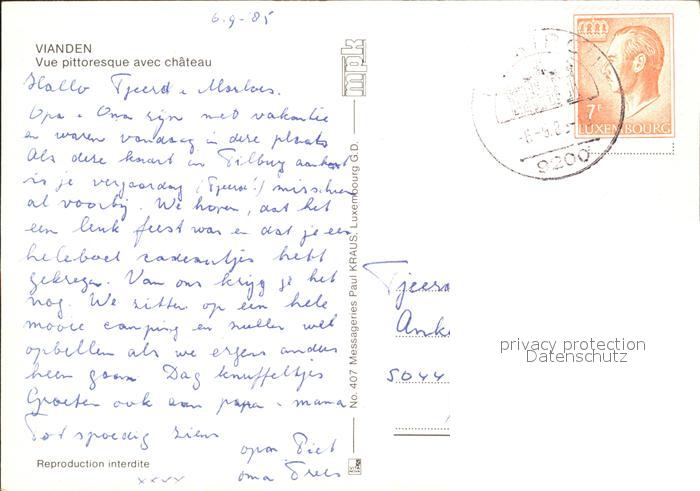 6.9-'85
VIANDEN
Vue pittoresque avec château
Hallo Tjeerd + Marloes.
Opa + Oma zijn met vakantie
en waren vandaag in deze plaats
Als deze kaart in Tilburg aankomt
is je verjaardag (Tjeerd!) misschien
al voorbij. We hopen, dat het
een leuk feest was en dat je een
heleboel cadeautjes hebt
gekregen. Van ons krijg je het
nog. We zitten op een hele
mooie camping en zullen wel
opbellen als we ergens anders
heen gaan Dag knuffeltjes
Groeten ook aan papa + mama
Tot spoedig ziens
opa Piet
oma Trees
xxxx
Reproduction interdite
mpk
No. 407 Messageries Paul KRAUS, Luxembourg G.D.
9200
7F
LUXEMBOURG
Tjeerd
Anke
5044
privacy protection
Datenschutz